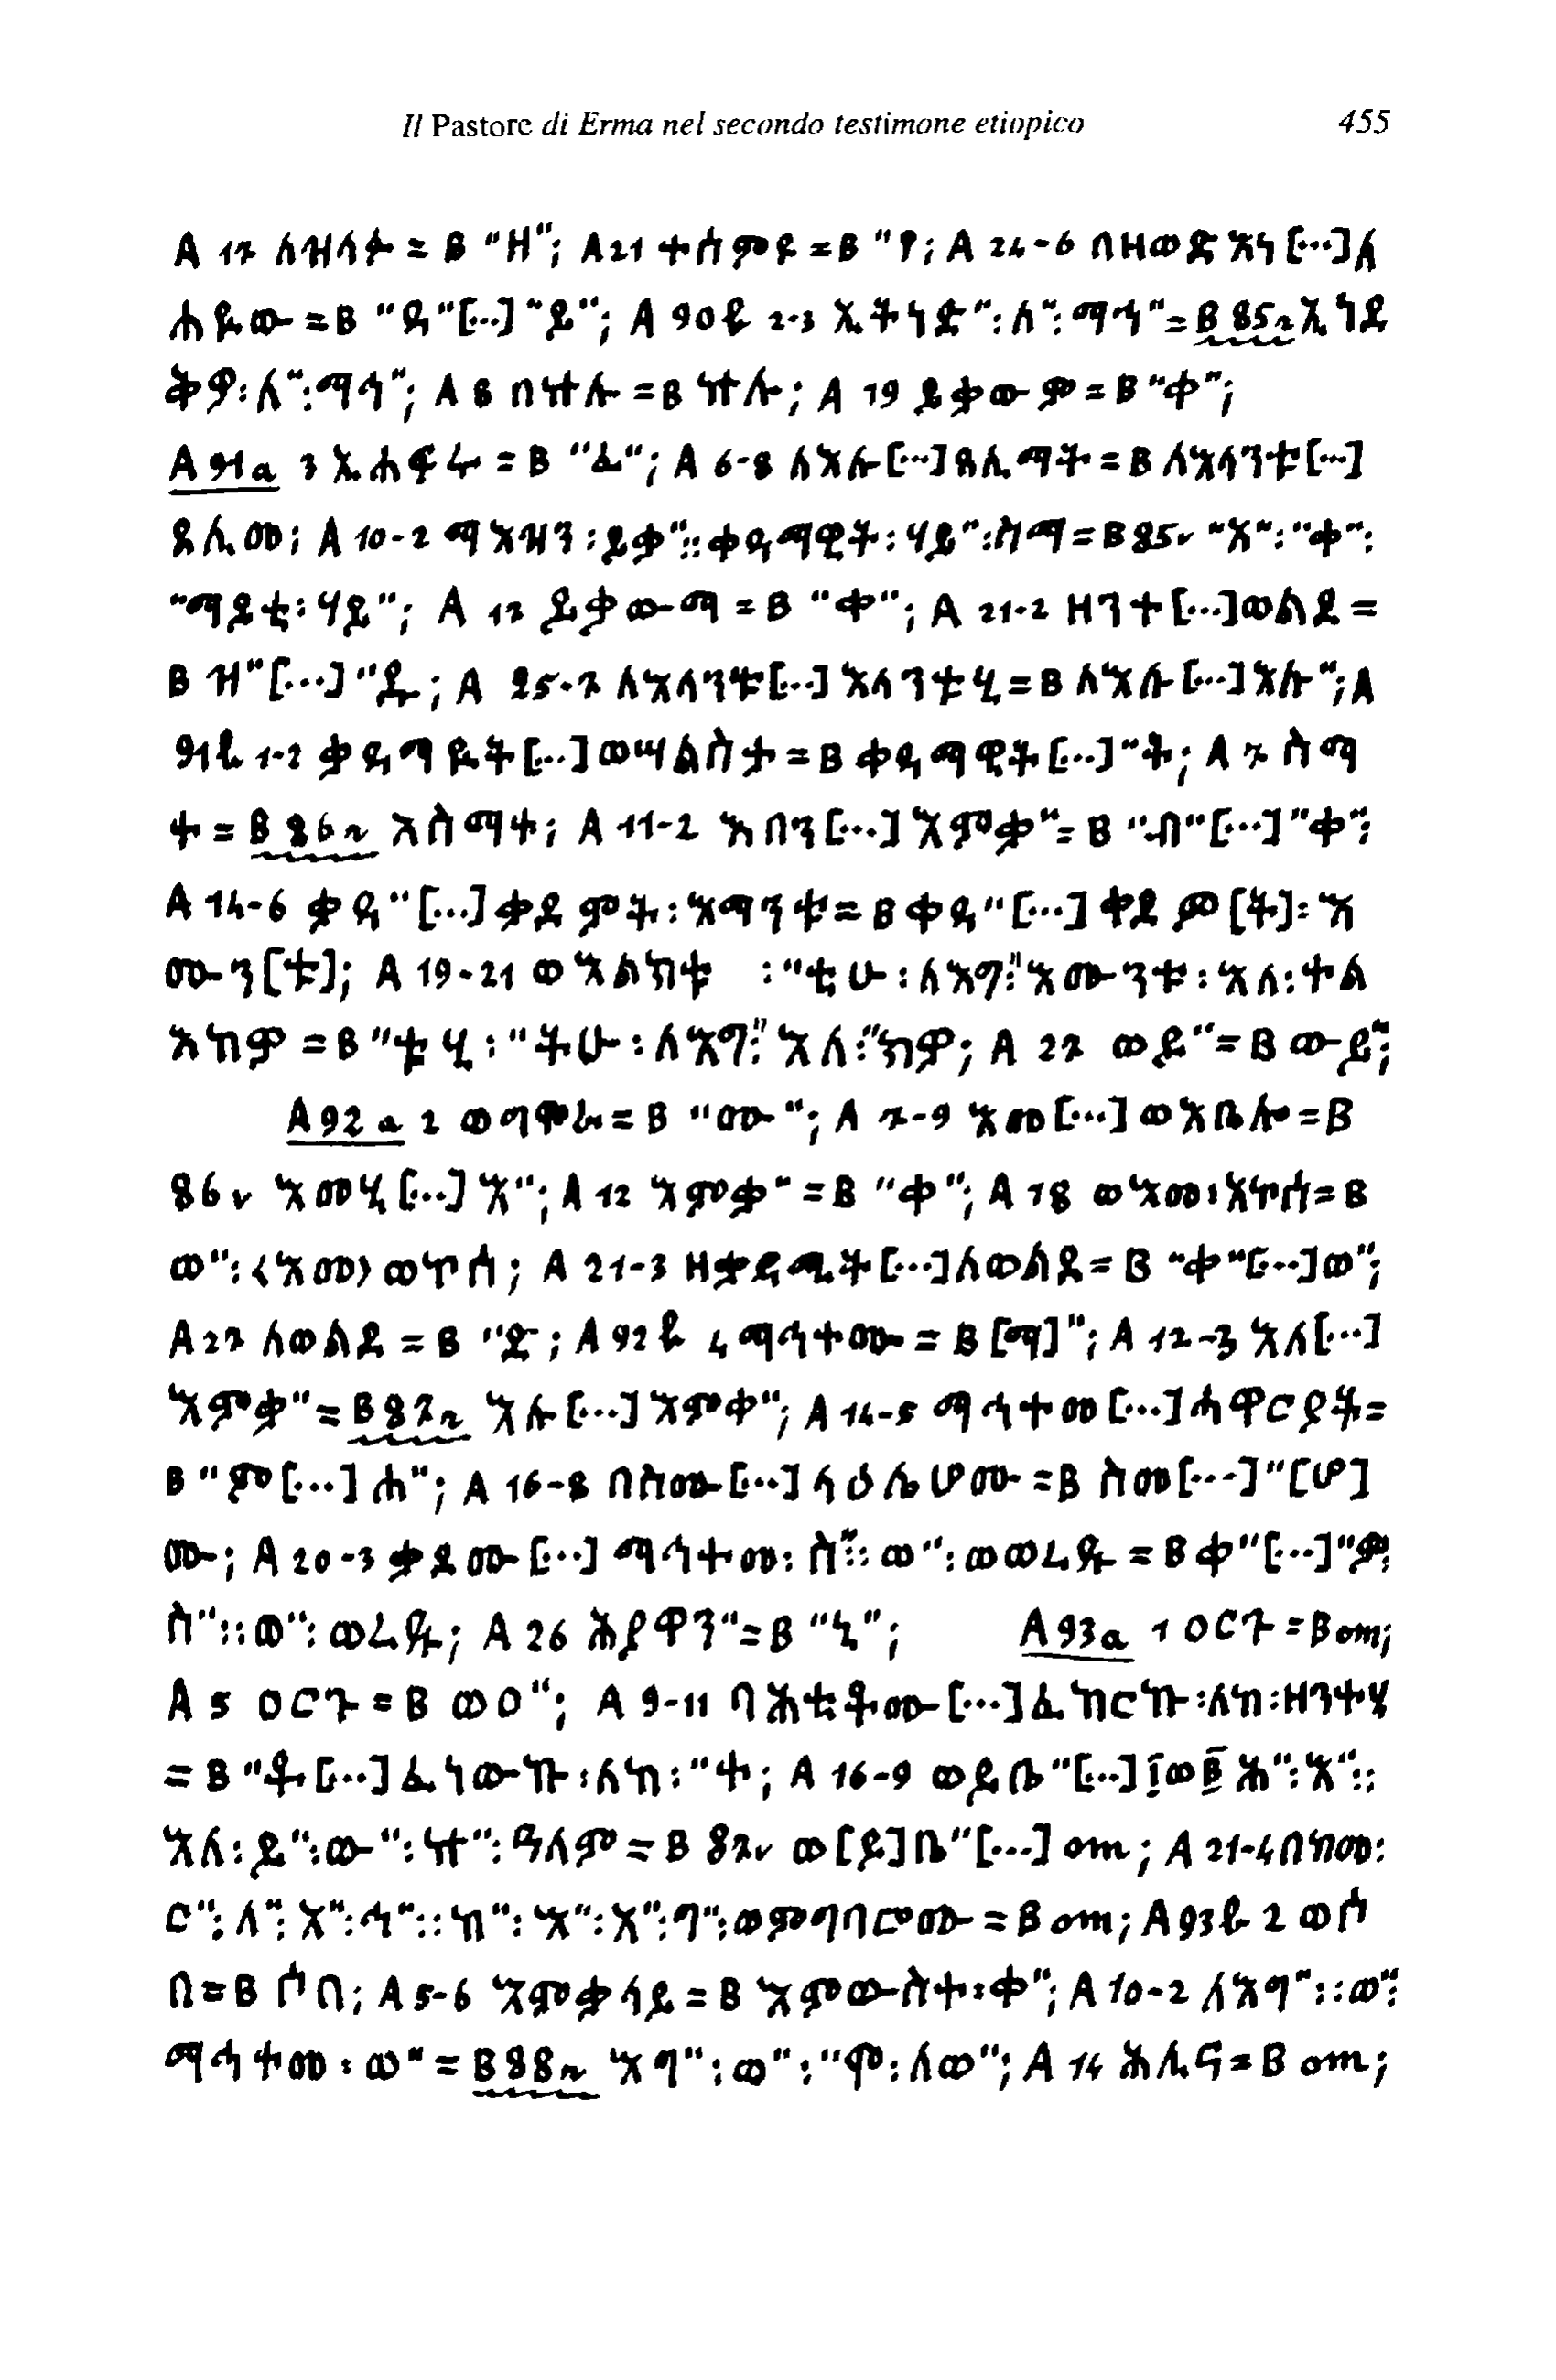 Il Pastore di Erma nel secondo testimone etiopico 455
A 17 ለዝሳቱ = B "ዘ"; A 21 ተስምዖ = B "ዖ; A 24-6 በዘወድአነ [...] ለ
ሐይው = B "ዲ"[...] "ይ"; A 90b 2-3 ኢትነድ": ለ": ማኅ" = B 85r ኢነደ
ቅዎ: ለ": ማኅ"; A 8 በኵሉ = B ኵሉ; A 19 ይቃውም = B "ቀ";
A 91a 3 ኢሐፍሩ = B "ፈ"; A 6-8 ለእሉ [...] ጸሊማት = B ለእላንቱ [...]
ጸሊመ; A 10-2 ማእዝን: ይቃ":: ቀዳማዊት: ሃይ": ስማ = B 85v "እ": "ቀ":
"ማይቲ: ሃይ"; A 17 ይቃውማ = B "ቀ"; A 21-2 ዘንተ [...] ወልደ =
B ዝ" [...] "ዱ; A 25-7 ለእላንቱ [...] እላንቱሂ = B ለእሉ [...] እሉ"; A
91b 1-2 ቃዳማይት [...] ወሣልስታ = B ቀዳማዊት [...] "ት; A 7 ስማ
ቱ = B 86r እስማቲ; A 11-2 እበን [...] እምቃ" = B "ብ" [...] "ቀ";
A 14-6 ቃዳ" [...] ቃደምት: እማንቱ = B ቀዳ" [...] ቀደም[ት]: እ
ሙን[ቱ]; A 19-21 ወእልክቱ : "ቲሁ: ለእግ": እሙንቱ: እለ: ተል
እክዎ = B "ቱሂ: "ትሁ: ለእግ": እለ: "ክዎ; A 27 ወይ" = B ውይ";
A 92a 2 ወማኅ = B "ሙ"; A 7-9 እመ [...] ወእቤሎ = B
86v እመሂ [...] እ"; A 12 እምቃ" = B "ቀ"; A 18 ወእመ: አኅሰ = B
ወ": <እመ> ወኅሰ; A 21-3 ዘቃዳሚት [...] ለወልደ = B "ቀ" [...] ወ";
A 27 ለወልደ = B "ድ"; A 92b 4 ማኅተሙ = B [ማ]"; A 12-3 እለ [...]
እምቃ" = B 87r እሉ [...] እምቀ"; A 14-5 ማኅተመ [...] ሐዋርያት =
B "ም [...] ሐ"; A 16-8 በስሙ [...] ላዕሌሆሙ = B ስመ [...] "[ሆ]
ሙ; A 20-3 ቃደሙ [...] ማኅተመ: ስ":: ወ": ወወረዱ = B ቀ" [...] "ም:
ስ":: ወ": ወረዱ; A 26 ሕያዋን" = B "ኒ"; A 93a 1 ዐርጉ = B om;
A 5 ዐርጉ = B ወዐ"; A 9-11 ባሕቲቶሙ [...] ፈከርኩ: ለከ: ዘንተሂ
= B "ቶ [...] ፈነውኩ: ለከ: "ተ; A 16-9 ወይቤ" [...] ፲ወ፪ ሕ": እ"::
እለ: ይ": ው": ኵ": ዓለም = B 87v ወ[ይ]ቤ" [...] om; A 21-4 በከመ:
ር": ለ": እ": ኅ":: ከ": እ": እ": ግ": ወምግባሮሙ = B om; A 93b 2 ወሰ
በ = B ሶበ; A 5-6 እምቃላይ = B እምውስተ: ቀ"; A 10-2 ለእግ":: ወ":
ማኅተመ: ወ" = B 88r እግ": ወ": "ም: ለወ"; A 14 ሕሊና = B om;